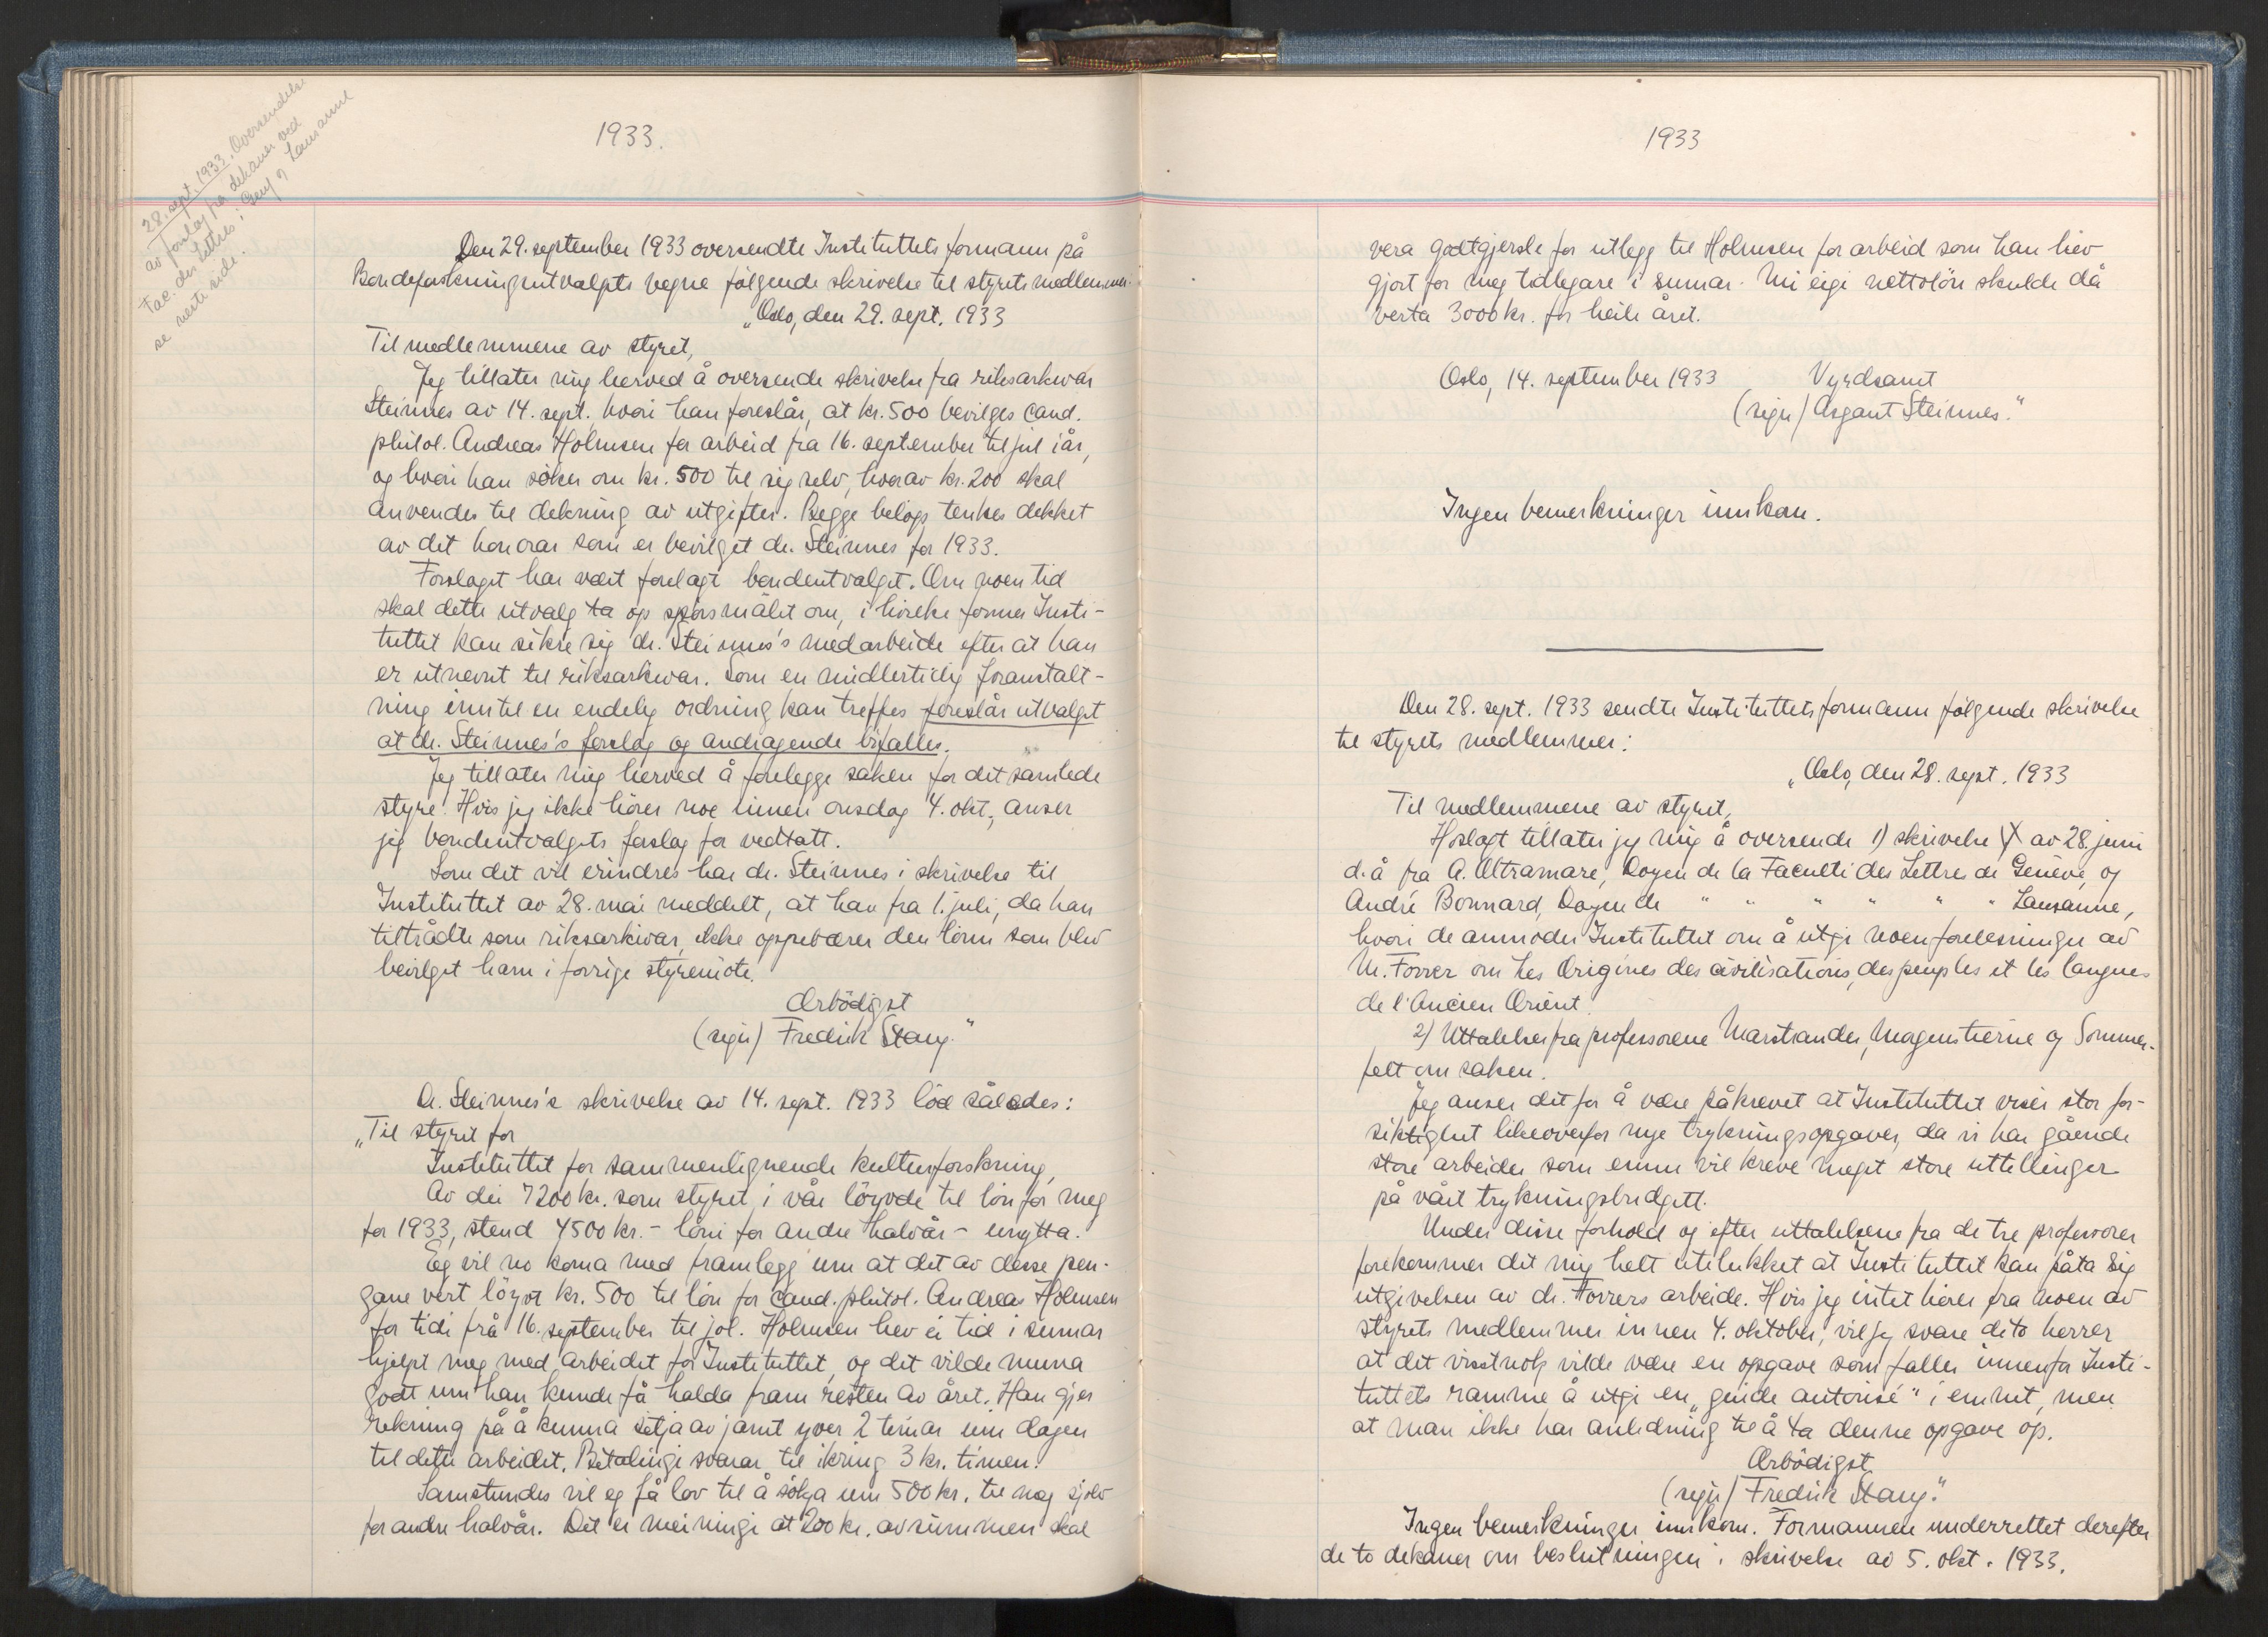 28. sept. 1933. Oversendelse
av forslag fra dekaner ved
Fac. des Lettres i Genf og Lausanne
se neste side.
1933.
Den 29. september 1933 oversendte Instituttets formann på
Bondeforskningsutvalgets vegne følgende skrivelse til styrets medlemmer:
„Oslo, den 29. sept. 1933
Til medlemmene av styret,
Jeg tillater mig herved å oversende skrivelse fra riksarkivar
Steinnes av 14. sept. hvori han foreslår, at kr. 500 bevilges cand.
philol. Andreas Holmsen for arbeid fra 16. september til jul iår,
og hvori han söker om kr. 500 til sig selv, hvorav kr. 200 skal
anvendes til dekning av utgifter. Begge beløp tenkes dekket
av det honorar som er bevilget dr. Steinnes for 1933.
Forslaget har vært forelagt bondeutvalget. Om noen tid
skal dette utvalg ta op spörsmålet om, i hvilke former Insti-
tuttet kan sikre sig dr. Steinnes's medarbeide efter at han
er utnevnt til riksarkivar. Som en midlertidig foranstalt-
ning inntil en endelig ordning kan treffes foreslår utvalget
at dr. Steinnes's forslag og andragende bifalles.
Jeg tillater mig herved å forelegge saken for det samlede
styre. Hvis jeg ikke hörer noe innen onsdag 4. okt., anser
jeg bondeutvalgets forslag for vedtatt.
Som det vil erindres har dr. Steinnes i skrivelse til
Instituttet av 28. mai meddelt, at han fra 1. juli, da han
tiltrådte som riksarkivar, ikke oppebærer den lönn som blev
bevilget ham i forrige styremöte.
Ærbödigst
(sign) Fredrik Stang.”
Dr. Steinnes's skrivelse av 14. sept. 1933 löd således:
„Til styret for
Instituttet for sammenlignende kulturforskning,
Av dei 7200 kr. som styret i vår löyvde til lön for meg
for 1933, stend 4500 kr. - löni for andre halvår - unytta.
Eg vil no koma med framlegg um at det av desse pen-
gane vert löyvt kr. 500 til lön for cand. philol. Andreas Holmsen
for tidi frå 16. september til jol. Holmsen hev ei tid i sumar
hjelpt meg med arbeidet for Instituttet, og det vilde muna
godt um han kunde få halda fram resten av året. Han gjer
rekning på å kunna setja av jamt yver 2 timar um dagen
til dette arbeidet. Betalingi svarar til ikring 3 kr. timen.
Samstundes vil eg få lov til å sökja um 500 kr. til meg sjölv
for andre halvår. Det er meiningi at 200 kr. av summen skal
1933
vera godtgjersle for utlegg til Holmsen for arbeid som han hev
gjort for meg tidlegare i sumar. Mi eigi nettolön skulde då
verta 3000 kr. for heile året.
Oslo, 14. september 1933 Vyrdsamt
(sign) Asgaut Steinnes.”
Ingen bemerkninger innkom.
Den 28. sept. 1933 sendte Instituttets formann følgende skrivelse
til styrets medlemmer:
„Oslo, den 28. sept. 1933
Til medlemmene av styret,
Hoslagt tillater jeg mig å oversende 1) skrivelse av 28. juni
d.å fra A. Oltramare, Doyen de la Faculté des Lettres de Genève, og
André Bonnard, Doyen de " " " " " " Lausanne,
hvori de anmoder Instituttet om å utgi noen forelesninger av
M. Forrer om Les Origines des civilisations, des peuples et les langues
de l'Ancien Orient.
2) Uttalelser fra professorene Marstrander, Morgenstierne og Sommer-
felt om saken.
Jeg anser det for å være påkrevet at Instituttet viser stor for-
siktighet likeoverfor nye trykningsopgaver, da vi har gående
store arbeider som ennu vil kreve meget store uttellinger
på vårt trykningsbudgett.
Under disse forhold og efter uttalelsene fra de tre professorer
forekommer det mig helt utelukket at Instituttet kan påta sig
utgivelsen av dr. Forrers arbeide. Hvis jeg intet hörer fra noen av
styrets medlemmer innen 4. oktober, vil jeg svare de to herrer
at det visstnok vilde være en opgave som faller innenfor Insti-
tuttets ramme å utgi en „guide autorisé” i emnet, men
at man ikke har anledning til å ta denne opgave op.
Ærbödigst
(sign) Fredrik Stang.”
Ingen bemerkninger innkom. Formannen underrettet derefter
de to dekaner om beslutningen i skrivelse av 5. okt. 1933.